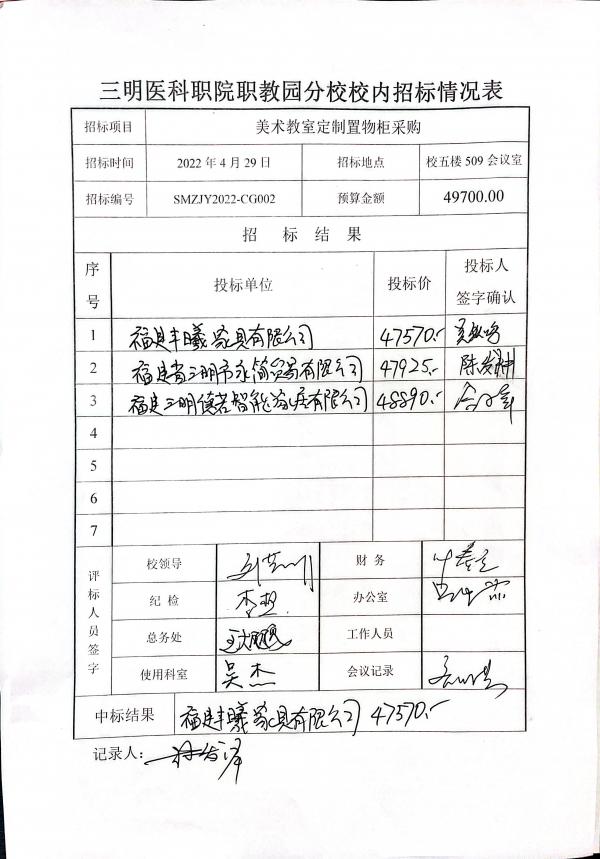 三明医科职院职教园分校校内招标情况表
招标项目 美术教室定制置物柜采购
招标时间 2022年4月29日 招标地点 校五楼509会议室
招标编号 SMZJY2022-CG002 预算金额 49700.00
招 标 结 果
序号 投标单位 投标价 投标人签字确认
1 福建丰曦家具有限公司 47570.-
2 福建省三明市永简贸易有限公司 47925.-
3 福建三明德岩智能家居有限公司 48890.-
4
5
6
7
评标人员签字
校领导 财 务
纪 检 李 办公室
总务处 工作人员
使用科室 吴杰 会议记录
中标结果 福建丰曦家具有限公司 47570.-
记录人: